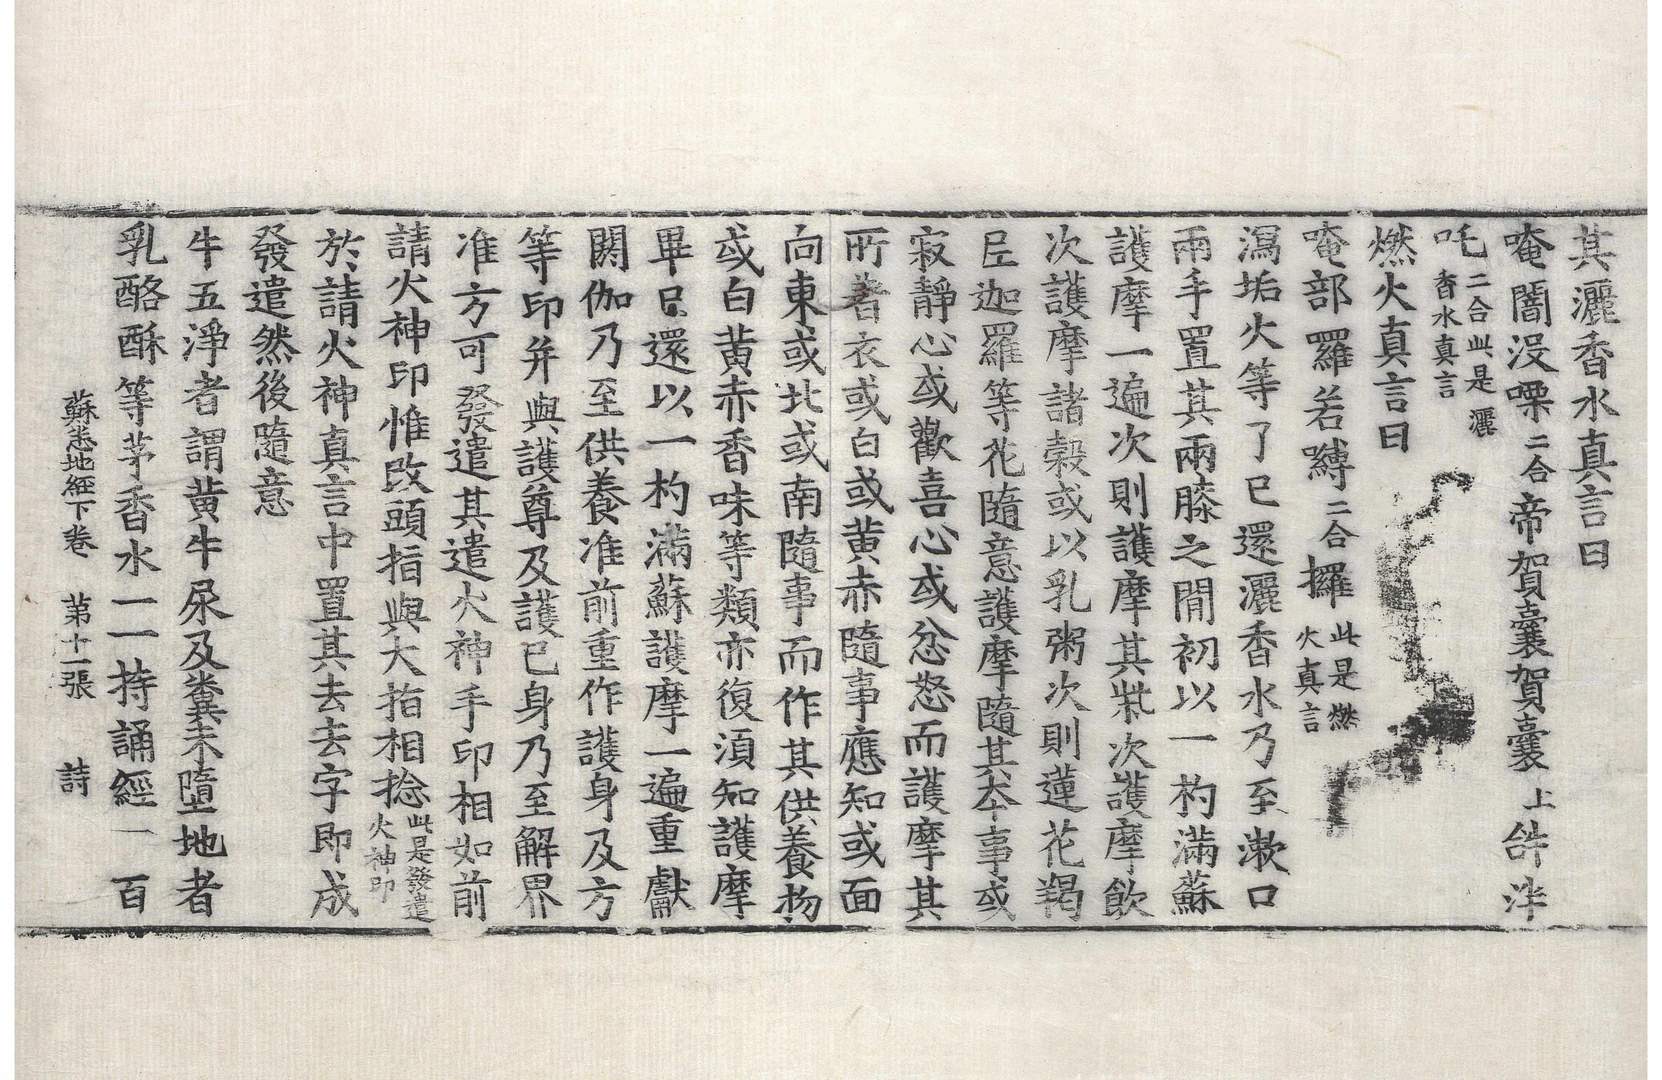 其灑香水真言曰
唵闇没㗚二合帝賀曩賀曩上㤄泮
吒二合此是灑香水真言
燃火真言曰
唵部羅若嚩二合攞此是燃火真言
瀉垢火等了已還灑香水乃至漱口
兩手置其兩膝之閒初以一杓滿蘇
護摩一遍次則護摩其柴次護摩飲
次護摩諸穀或以乳粥次則蓮花羯
尼迦羅等花隨意護摩隨其本事或
寂靜心或歡喜心或忿怒而護摩其
所著衣或白或黄赤隨事應知或面
向東或北或南隨事而作其供養物
或白黄赤香味等類亦復湏知護摩
畢已還以一杓滿蘇護摩一遍重獻
閼伽乃至供養准前重作護身及方
等印并與護尊及護已身乃至解界
准方可發遣其遣火神手印相如前
請火神印惟改頭指與大指相捻此是發遣火神印
於請火神真言中置其去去字即成
發遣然後隨意
牛五淨者謂黄牛尿及糞未墮地者
乳酪酥等茅香水一一持誦經一百
蘇悉地經下卷　第十一張　詩